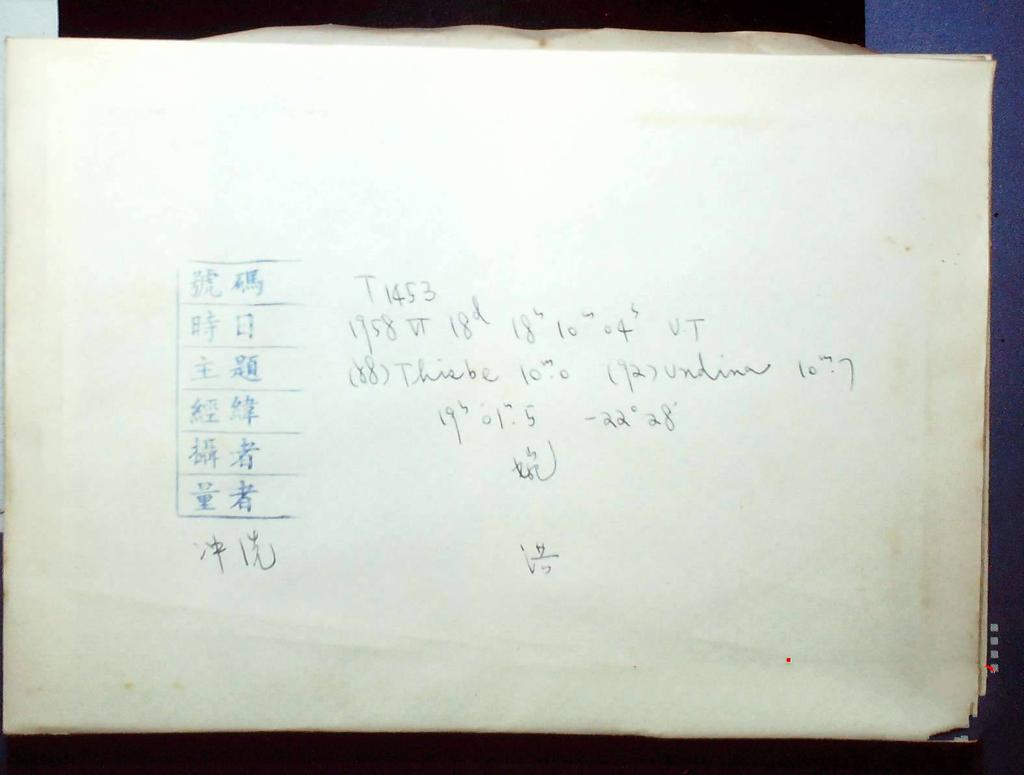 號碼 T1453
時日 1958 VI 18ᵈ 18ʰ 10ᵐ 04ˢ U.T
主題 (88) Thisbe 10ᵐ.0 (92) Undina 10ᵐ.7
經緯 19ʰ 01ᵐ.5 -22° 28'
攝者 婉
量者
冲洗 洪